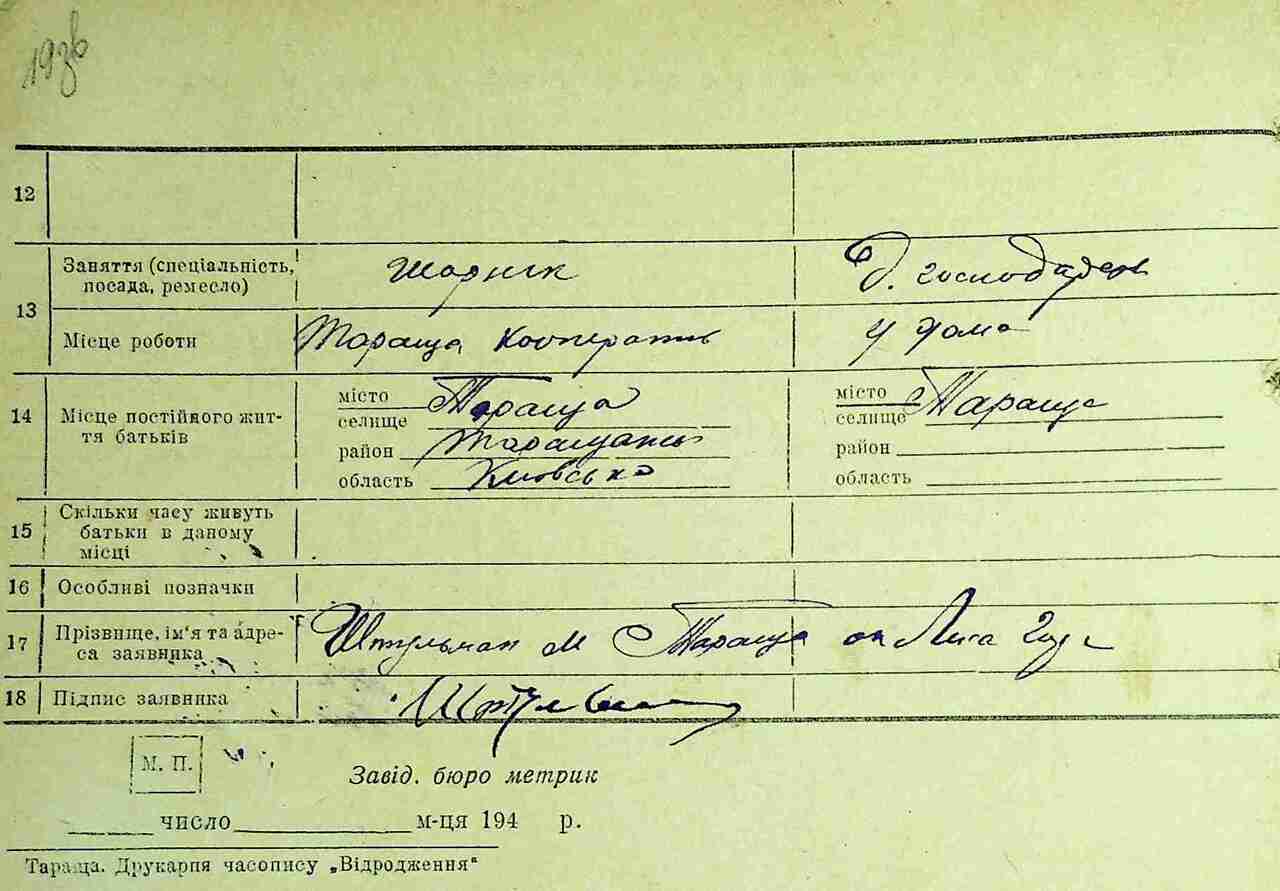 1936
12
13 Заняття (спеціальність, посада, ремесло) Шорник Д. господарка
Місце роботи Тараща Кооператив у дома
14 Місце постійного життя батьків
місто Тараща місто Тараща
селище селище
район Таращанськ район
область Київсько область
15 Скільки часу живуть батьки в даному місці
16 Особливі позначки
17 Прізвище, ім'я та адреса заявника Штульман М Тараща Лиса Гора
18 Підпис заявника Штульман
М. П.
Завід. бюро метрик
число м-ця 194 р.
Тараща. Друкарня часопису „Відродження"